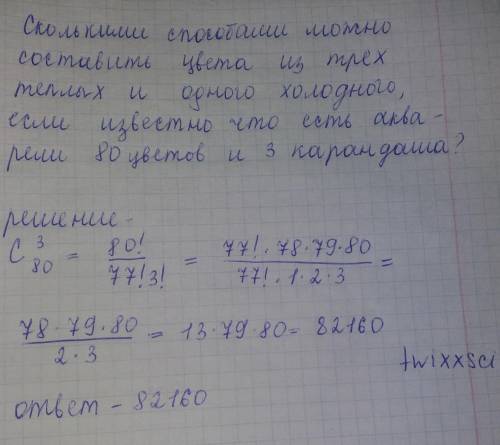 Сколькими способами можно
составить цвета из трех
теплых и одного холодного,
если известно что есть аква-
рели 80 цветов и 3 карандаша?
решение -
C³₈₀ = 80! / 77!3! = 77! · 78·79·80 / 77! · 1·2·3 =
78·79·80 / 2·3 = 13·79·80 = 82160
twixxsci
ответ - 82160